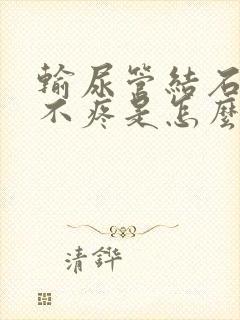 輸尿管結石
不疼是怎麼
清鏵